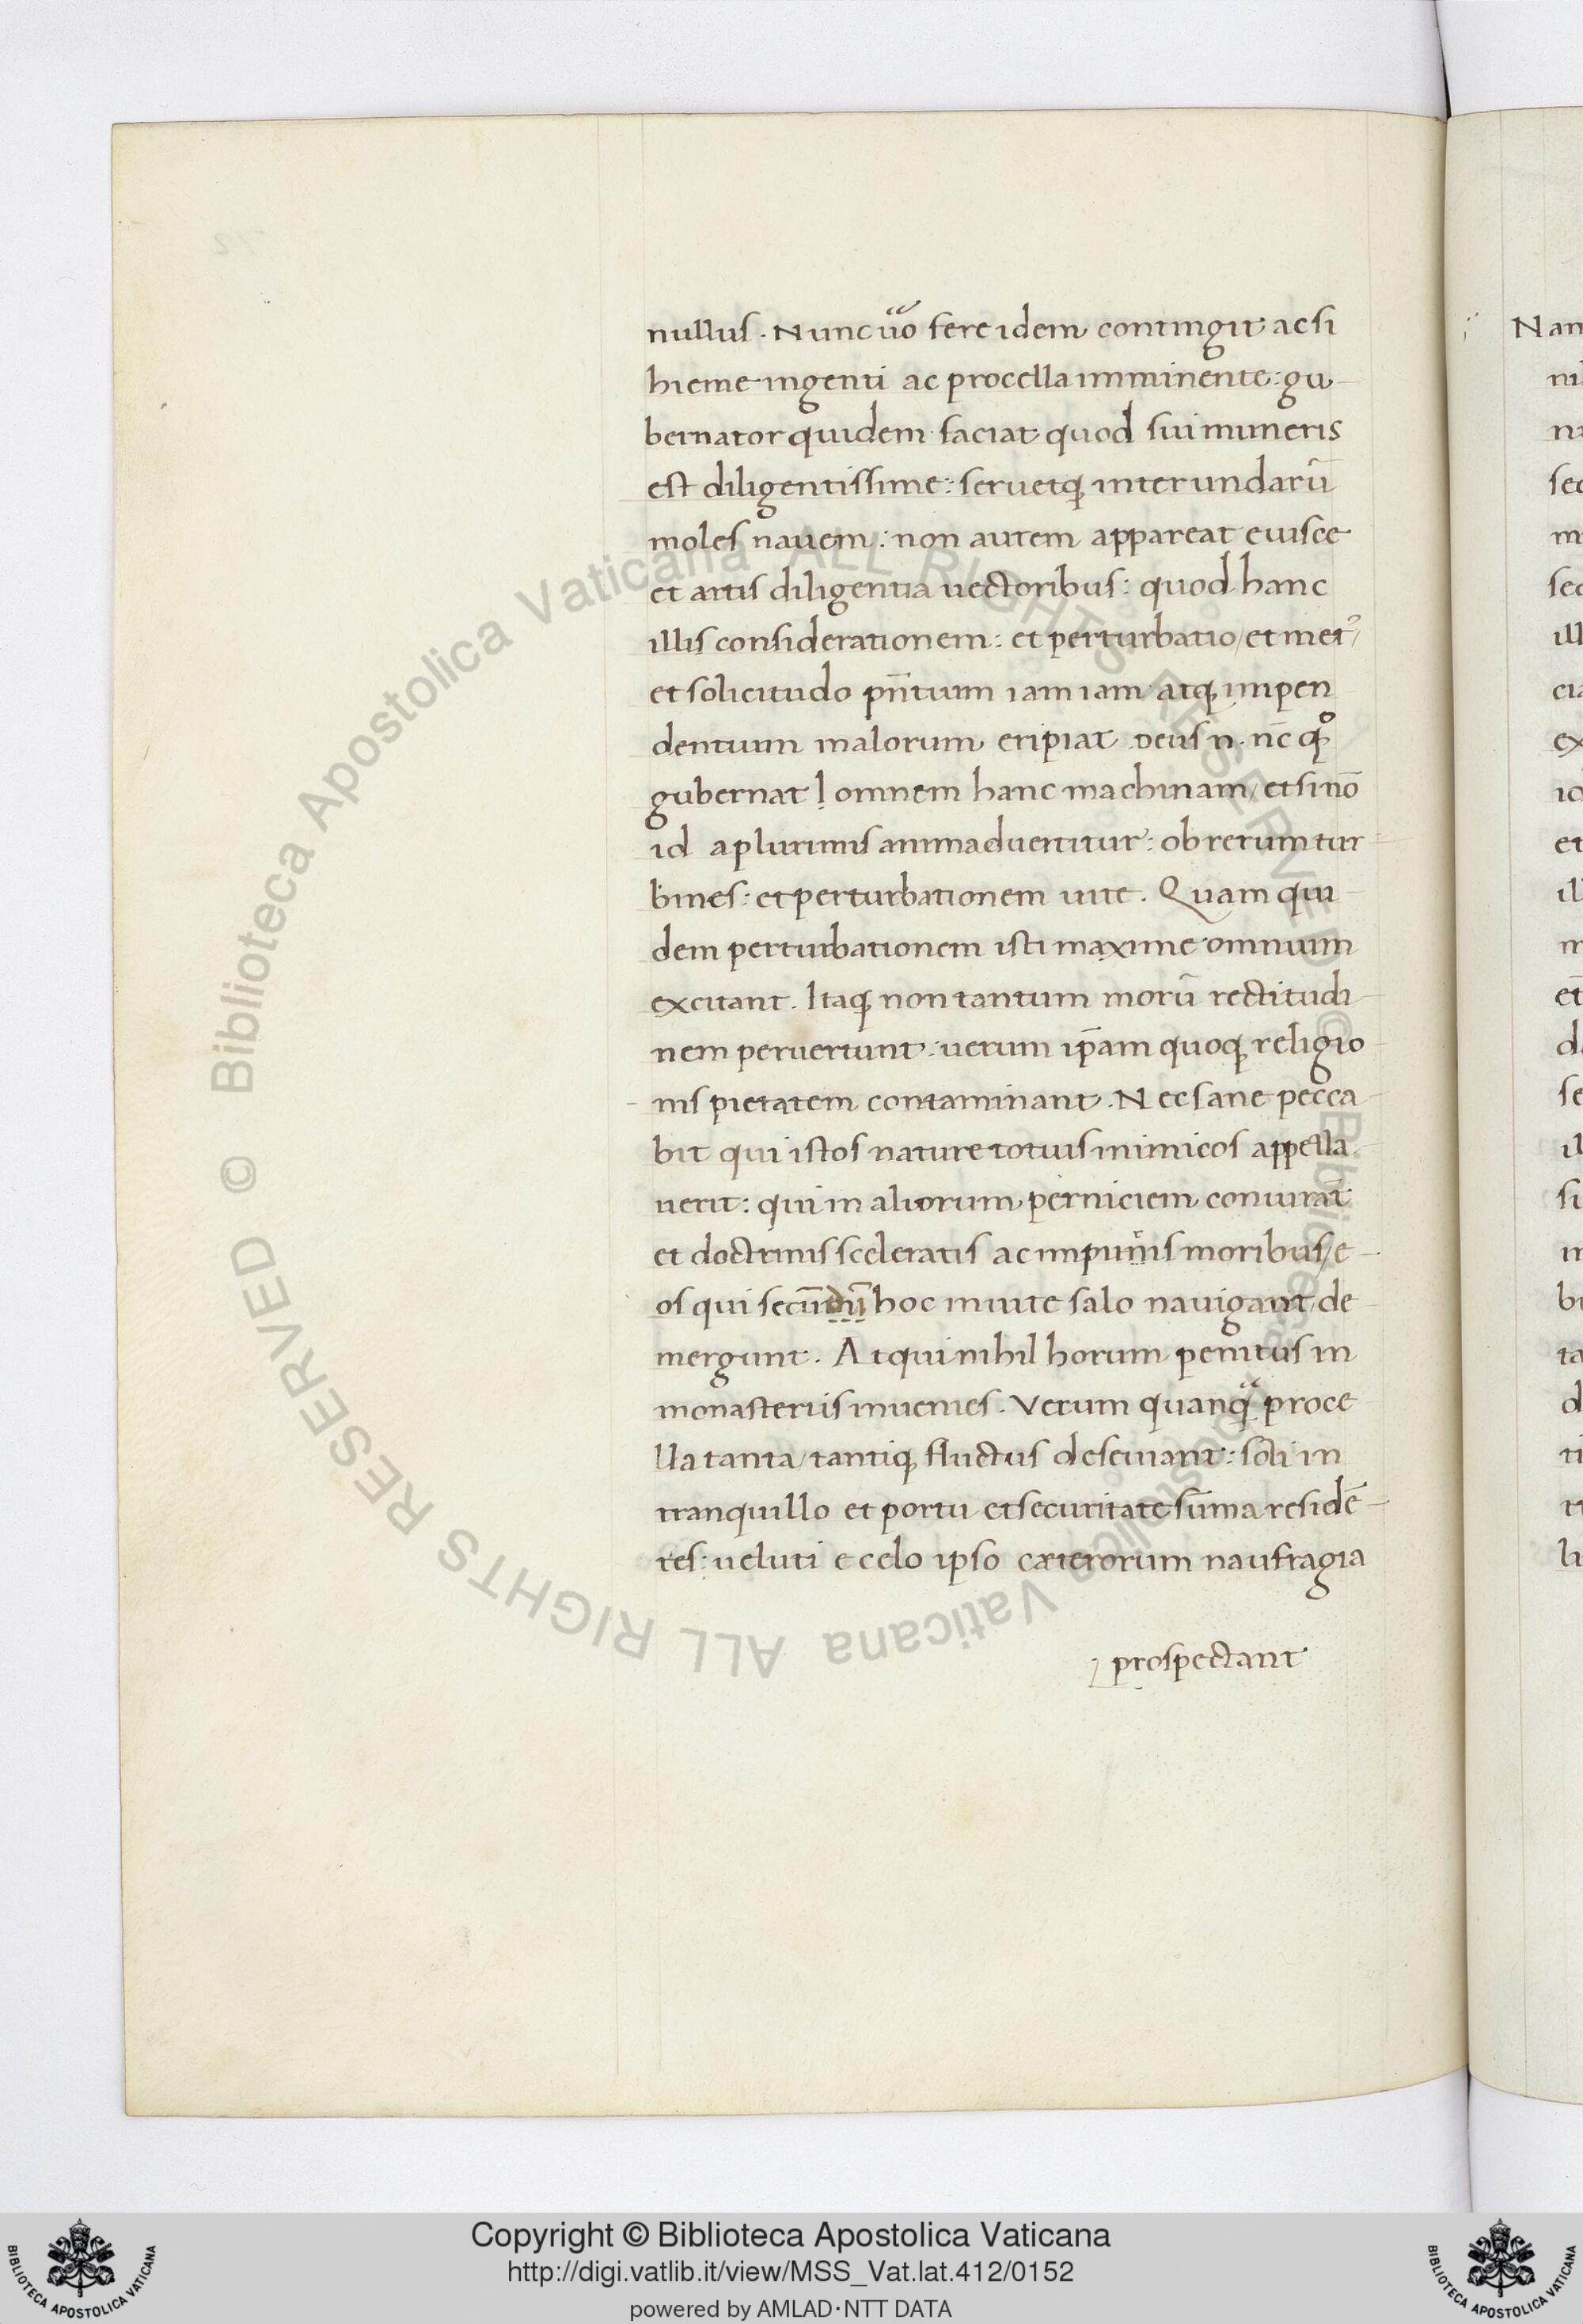 nullus. Nunc u͛o fere idem contingit ac si
hieme ingenti ac procella imminente: gu
bernator quidem faciat quod sui muneris
est diligentissime: seruetq; inter undarū
moles nauem: non autem appareat euisce
et artis diligentia uectoribus: quod hanc
illis considerationem: et perturbatio/ et metꝰ/
et solicitudo pn̄tium iam iam atq; impen
dentium malorum eripiat. Deus n. nc̄ qͦq;
gubernat omnem hanc machinam/ etsi nō
id a plurimis animaduertitur: ob rerum tur
bines: et perturbationem uite. Quam qui
dem perturbationem isti maxime omnium
excitant. Itaq; non tantum morū rectitudi
nem peruertunt: uerum ip̄am quoq; religio
nis pietatem contaminant. Nec sane pecca
bit qui istos nature totius inimicos appella
uerit: qui in aliorum perniciem coniurāt
et doctrinis sceleratis ac impuris moribus/ e
os qui secū hoc in uite salo nauigant/ de
mergunt. Atqui nihil horum penitus in
monasteriis inuenies. Verum quanq̄ proce
lla tanta/ tantiq; fluctus deseuiant: soli in
tranquillo et portu et securitate sūma residē
tes: ueluti e celo ipso cæterorum naufragia
prospectant
Nan
ni
sed
m
sed
ill
cia
ex
id
et
ill
m
et̄
d
se
il
si
in
bu
ta
d
ti
li
© Biblioteca Apostolica Vaticana ALL RIGHTS RESERVED © Biblioteca Apostolica Vaticana ALL RIGHTS RESERVED
BIBLIOTECA APOSTOLICA VATICANA
Copyright © Biblioteca Apostolica Vaticana
http://digi.vatlib.it/view/MSS_Vat.lat.412/0152
powered by AMLAD·NTT DATA
BIBLIOTECA APOSTOLICA VATICANA